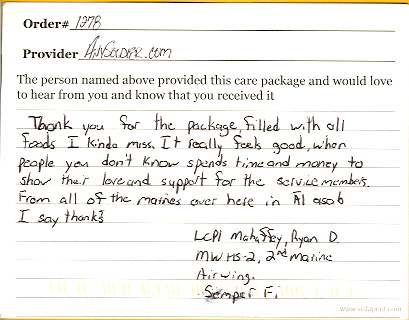 Order# 1278
Provider AnySoldier.com
The person named above provided this care package and would love
to hear from you and know that you received it
Thank you for the package, filled with all
foods I kinda miss. It really feels good, when
people you don't know spends time and money to
show their love and support for the service members.
From all of the marines over here in Al asad
I say thanks
LCPl Mahaffey, Ryan D.
MWHS-2, 2nd Marine
Air wing.
Semper Fi
www.vistaprint.com